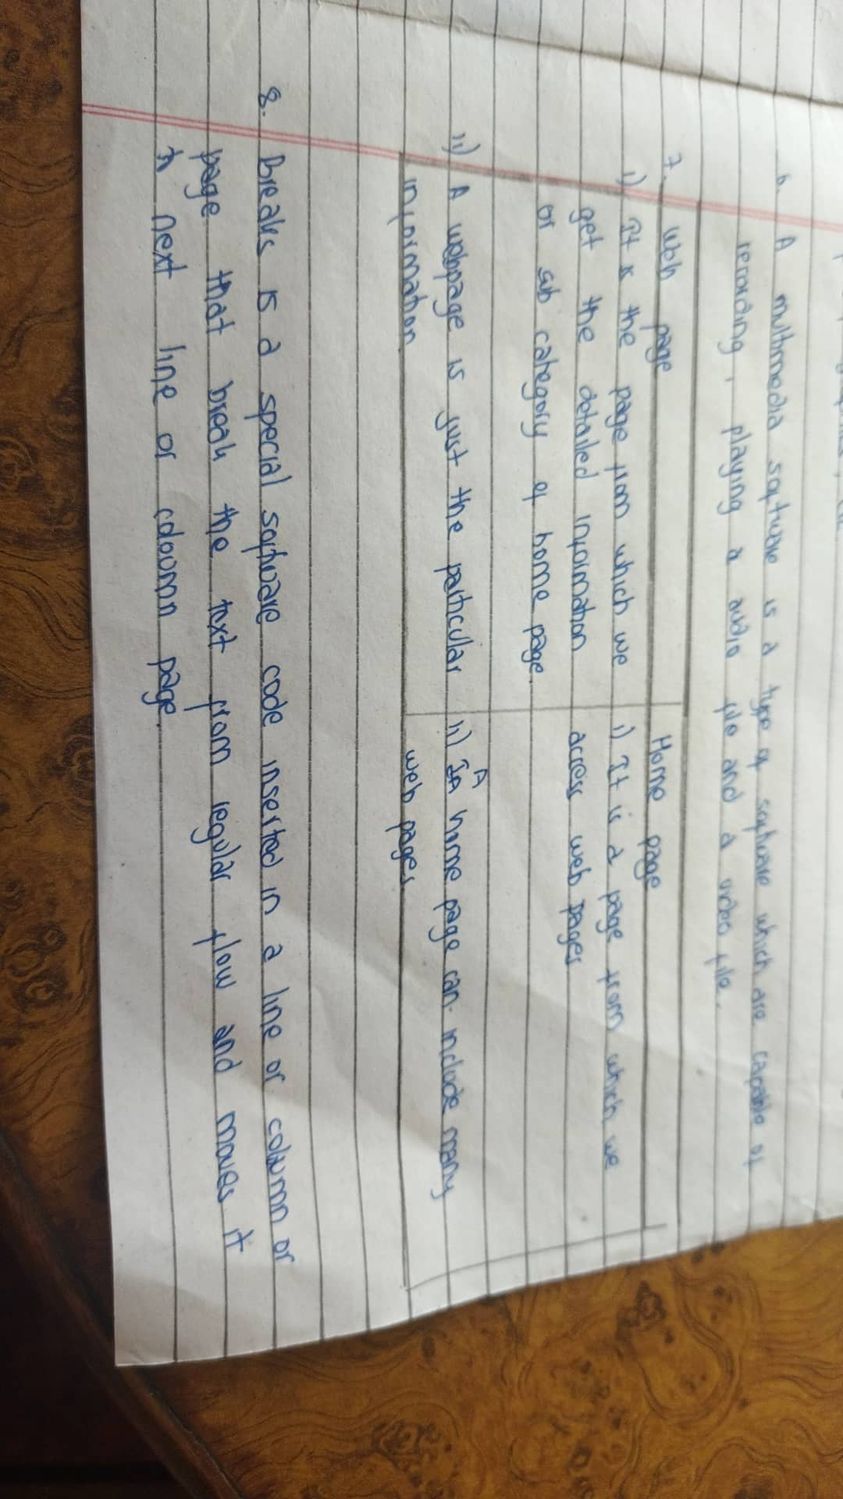 6. A multimedia software is a type of software which are capable of
recording, playing a audio file and a video file.
7. web page
Home page
i) It is the page from which we
get the detailed information
or sub category of home page.
i) It is a page from which we
access web pages
ii) A webpage is just the particular
information
ii) A home page can include many
web pages
8. Breaks is a special software code inserted in a line or column or
page that break the text from regular flow and moves it
to next line or coloumn page.